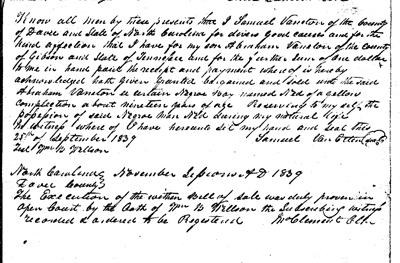 Know all men by these presents that I Samuel Vaneton of the County
of Davie and State of North Carolina for divers good causes and for the
kind affection that I have for my son Abraham Vaneton of the County
of Gibson and State of Tennessee and for the further Sum of one dollar
to me in hand paid the receipt and payment where of is hereby
acknowledged hath given granted bargained and sold unto the said
Abraham Vaneton a certain Negroe boy named Ned of a yellow
complection about nineteen years of age Reserving to my self the
possession of said Negroe man Ned during my natural life
In witness where of I have hereunto set my hand and seal this
25th of September 1839 Samuel Van Etten (seal)
Test Wm B Wellson
North Carolina November Session A D 1839
Davie County
The Execution of the within bill of sale was duly proven in
open Court by the Oath of Wm B Wellson the Subscribing witness
recorded & ordered to be Registered McClement Clk.